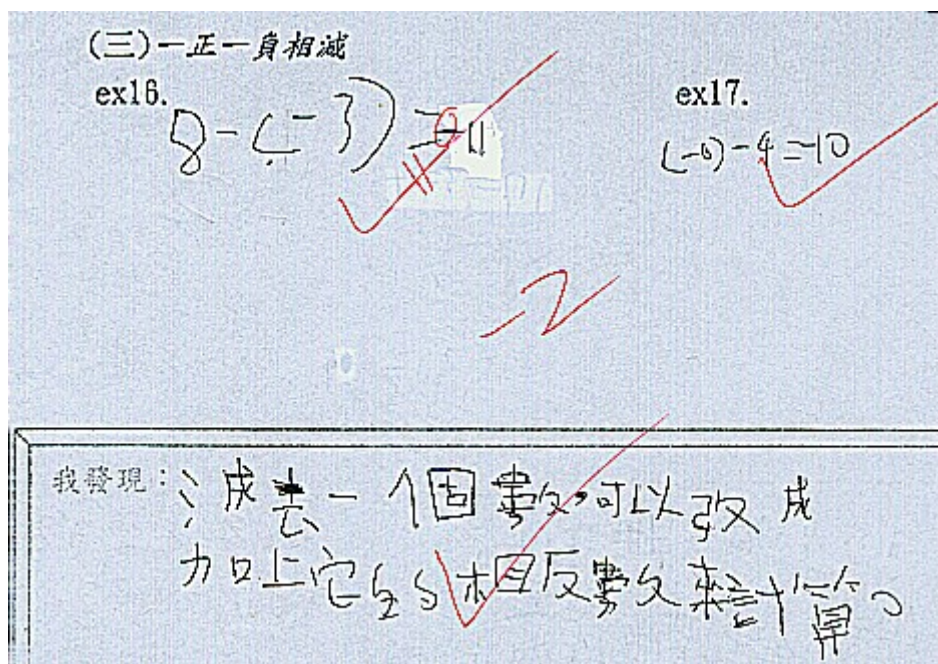 (三)一正一負相減
ex16.
ex17.
8-(-3)=11
(-6)-4=-10
-2
我發現：減去一個數，可以改成
加上它的相反數來計算。